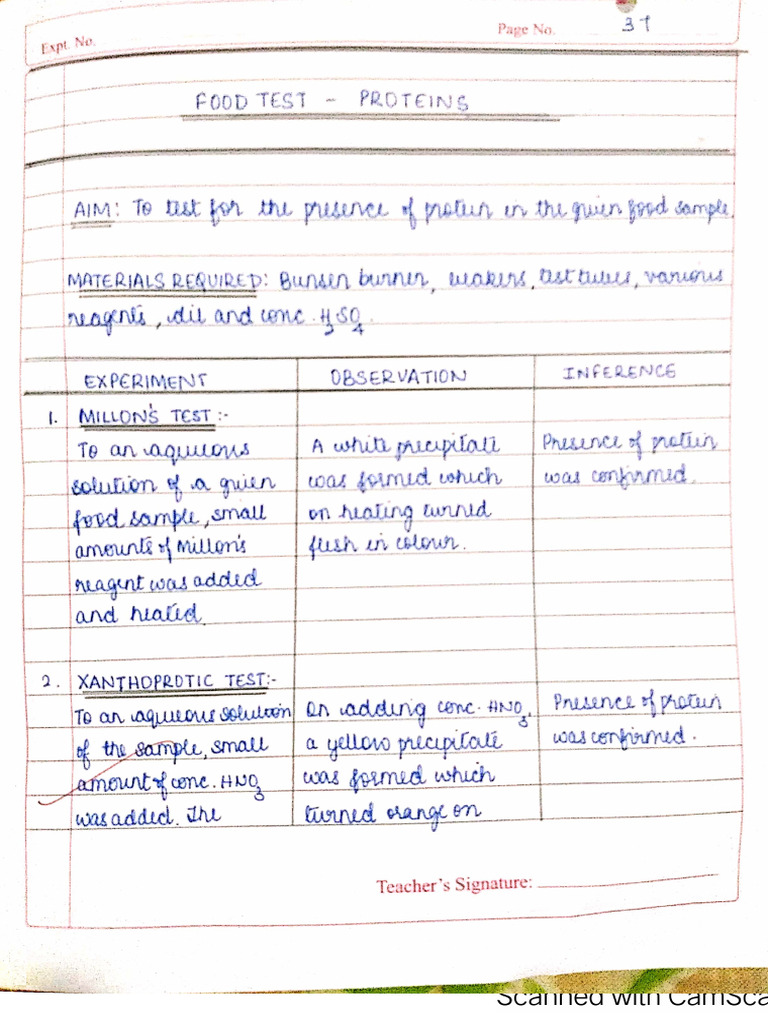 Expt. No.
Page No. 37
FOOD TEST - PROTEINS
AIM: To test for the presence of protein in the given food sample.
MATERIALS REQUIRED: Bunsen burner, beakers, test tubes, various
reagents, dil and conc. H3SO4.
EXPERIMENT OBSERVATION INFERENCE
1. MILLON'S TEST :-
To an aqueous A white precipitate Presence of protein
solution of a given was formed which was confirmed.
food sample, small on heating turned
amounts of Millon's flesh in colour.
reagent was added
and heated.
2. XANTHOPROTIC TEST:-
To an aqueous solution On adding conc. HNO3, Presence of protein
of the sample, small a yellow precipitate was confirmed.
amount of conc. HNO3 was formed which
was added. The turned orange on
Teacher's Signature:
Scanned with CamSca